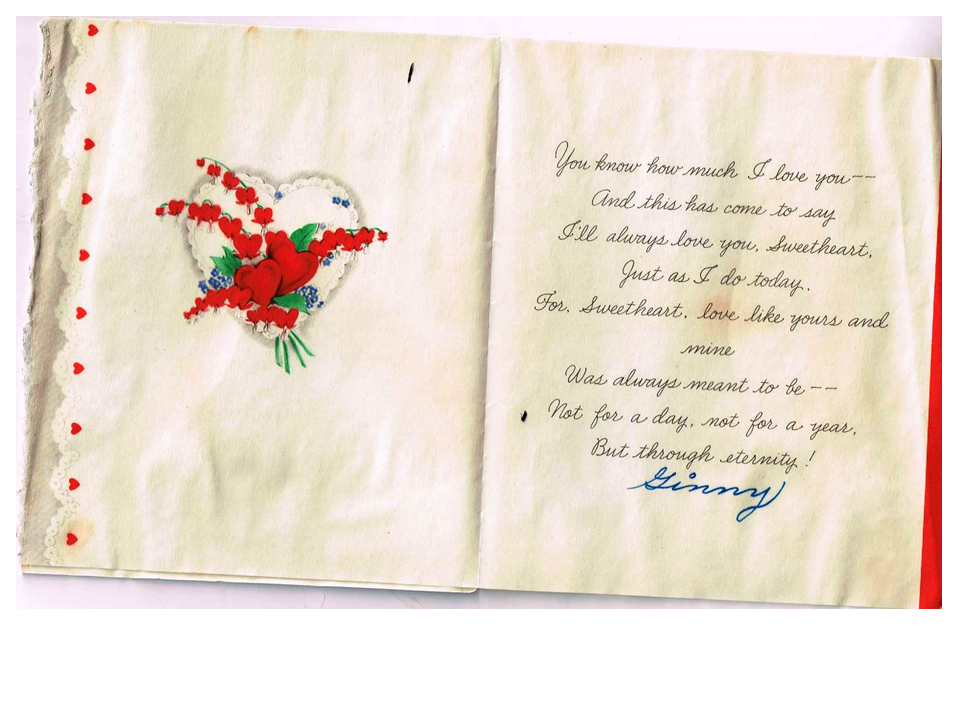 You know how much I love you--
And this has come to say
I'll always love you, Sweetheart,
Just as I do today.
For, Sweetheart, love like yours and
mine
Was always meant to be--
Not for a day, not for a year,
But through eternity!
Ginny